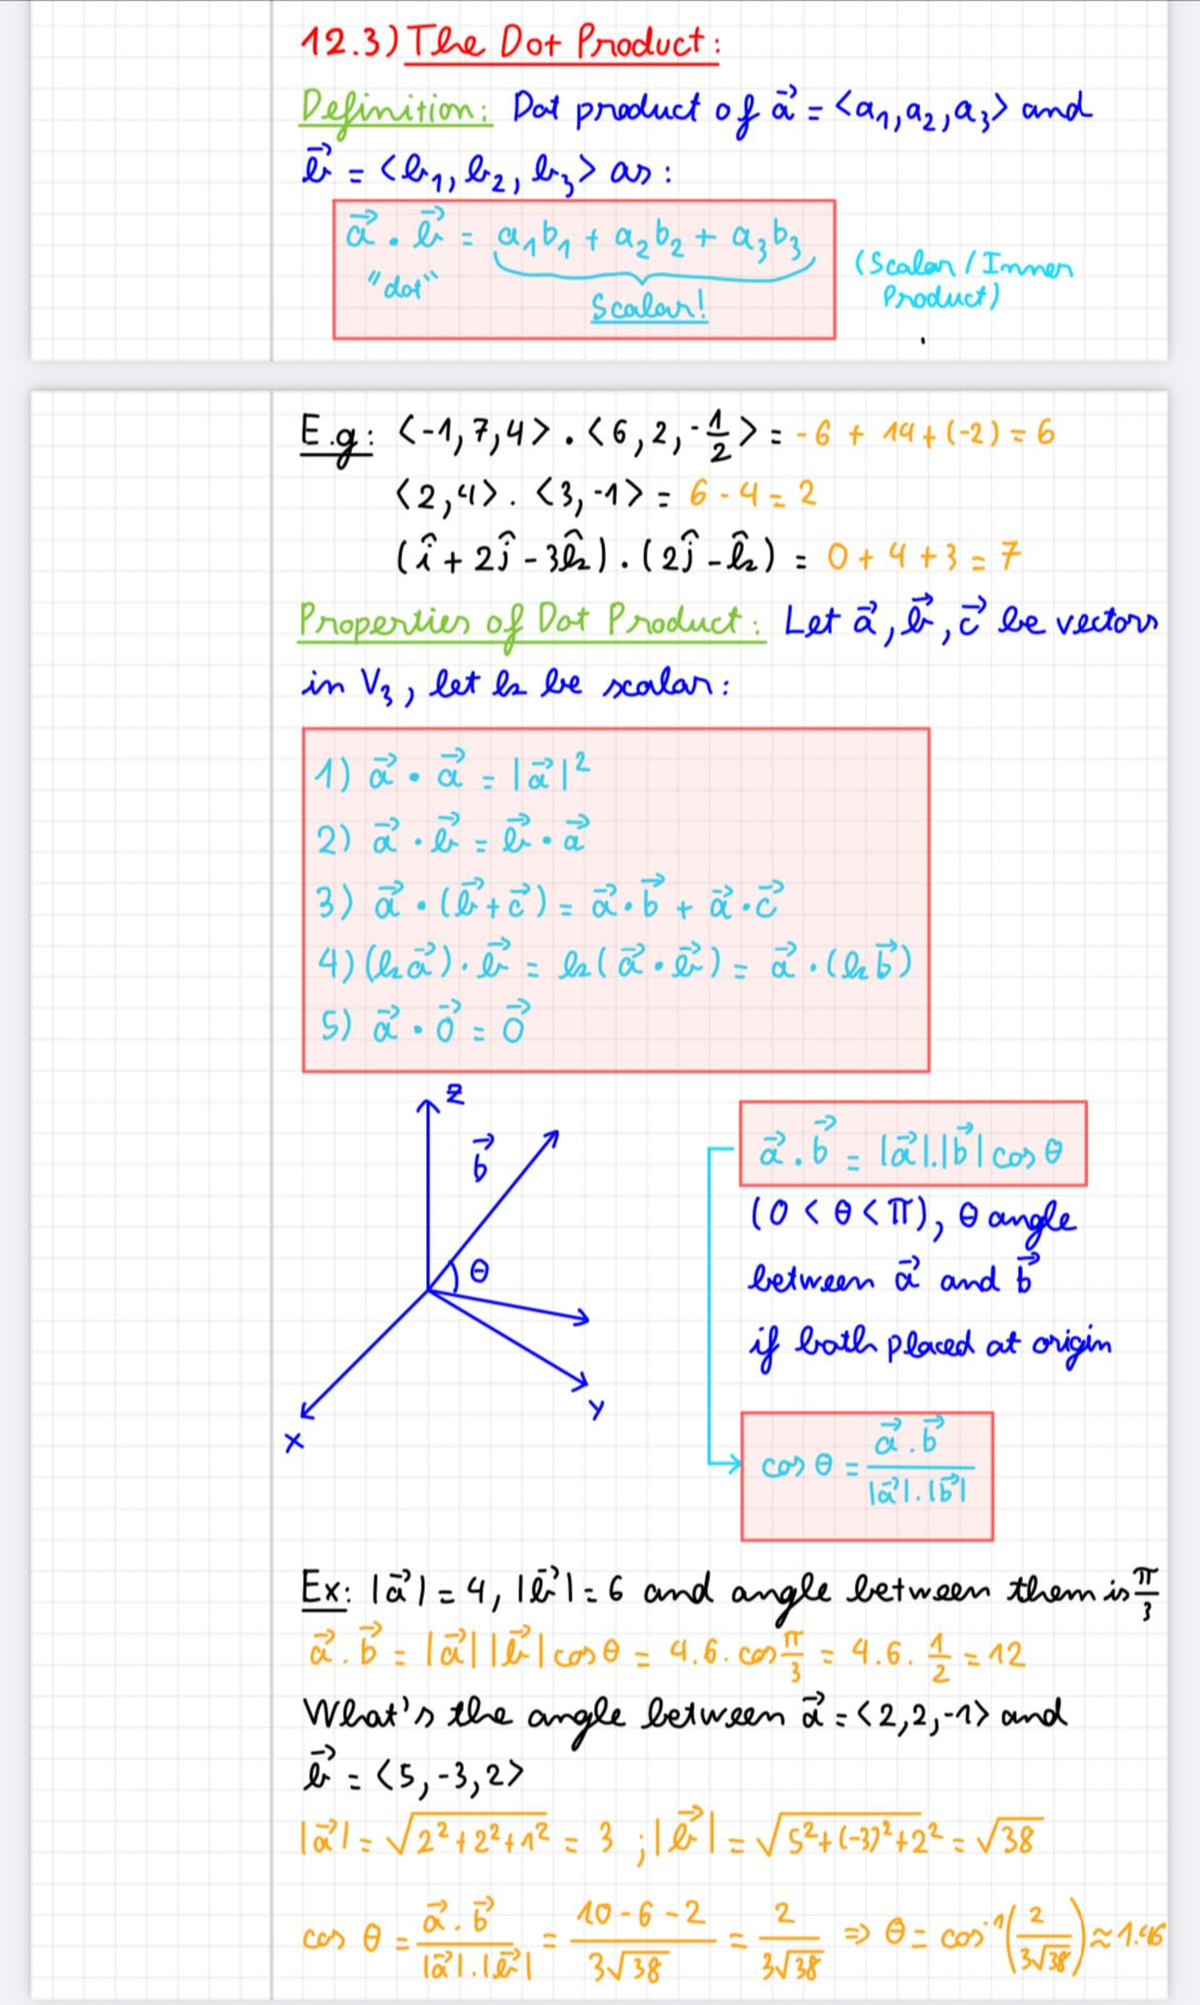 12.3) The Dot Product:
Definition: Dot product of a⃗ = <a₁, a₂, a₃> and
b⃗ = <b₁, b₂, b₃> as:
a⃗ . b⃗ = a₁b₁ + a₂b₂ + a₃b₃
"dot"
Scalar!
(Scalar / Inner
Product)
E.g: <-1, 7, 4> . <6, 2, -1/2> = -6 + 14 + (-2) = 6
<2, 4> . <3, -1> = 6 - 4 = 2
(î + 2ĵ - 3k̂) . (2ĵ - k̂) = 0 + 4 + 3 = 7
Properties of Dot Product: Let a⃗, b⃗, c⃗ be vectors
in V₃, let k be scalar:
1) a⃗ · a⃗ = |a⃗|²
2) a⃗ · b⃗ = b⃗ · a⃗
3) a⃗ · (b⃗ + c⃗) = a⃗ · b⃗ + a⃗ · c⃗
4) (ka⃗) · b⃗ = k(a⃗ · b⃗) = a⃗ · (kb⃗)
5) a⃗ · 0⃗ = 0⃗
z
b⃗
θ
y
x
a⃗ . b⃗ = |a⃗|.|b⃗| cos θ
(0 < θ < π), θ angle
between a⃗ and b⃗
if both placed at origin
cos θ = a⃗ . b⃗ / |a⃗| . |b⃗|
Ex: |a⃗| = 4, |b⃗| = 6 and angle between them is π/3
a⃗ . b⃗ = |a⃗| |b⃗| cos θ = 4.6. cos π/3 = 4.6. 1/2 = 12
What's the angle between a⃗ = <2, 2, -1> and
b⃗ = <5, -3, 2>
|a⃗| = √(2² + 2² + 1²) = 3 ; |b⃗| = √(5² + (-3)² + 2²) = √38
cos θ = a⃗ . b⃗ / |a⃗| . |b⃗| = 10 - 6 - 2 / 3√38 = 2 / 3√38 => θ = cos⁻¹(2 / 3√38) ≈ 1.46